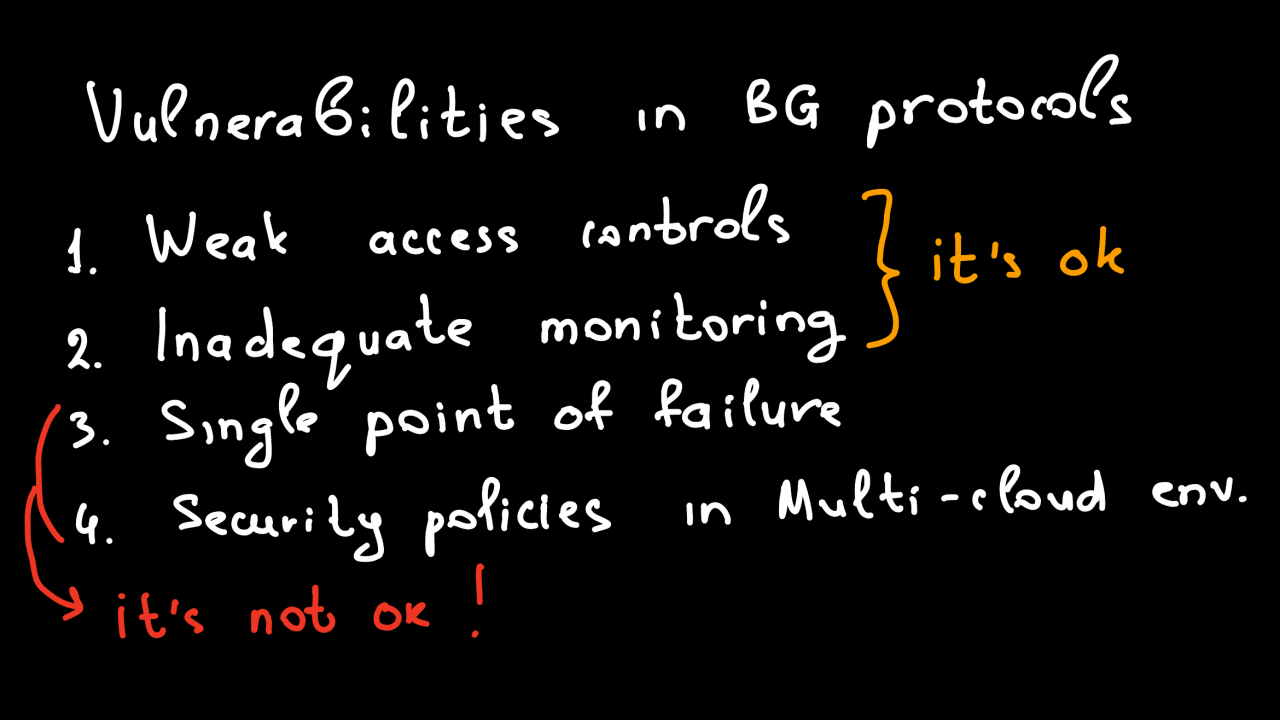 Vulnerabilities in BG protocols
1. Weak access controls
2. Inadequate monitoring
it's ok
3. Single point of failure
4. Security policies in Multi-cloud env.
it's not ok!